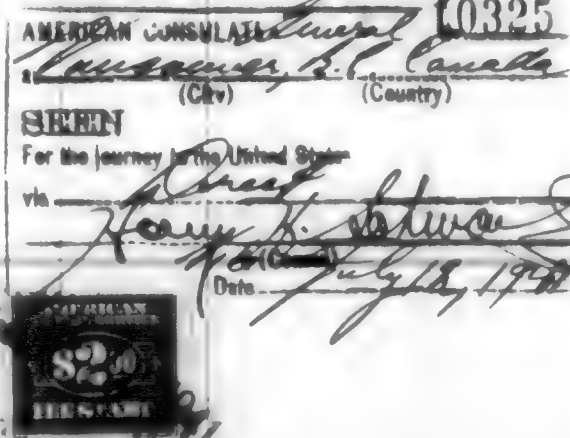 AMERICAN CONSULATE General 10325
at Vancouver, B.C. Canada
(City) (Country)
SEEN
For the journey to the United States
via Direct
Harry K.
(Consul)
Date July 18, 19
AMERICAN
$2.00
FEE STAMP